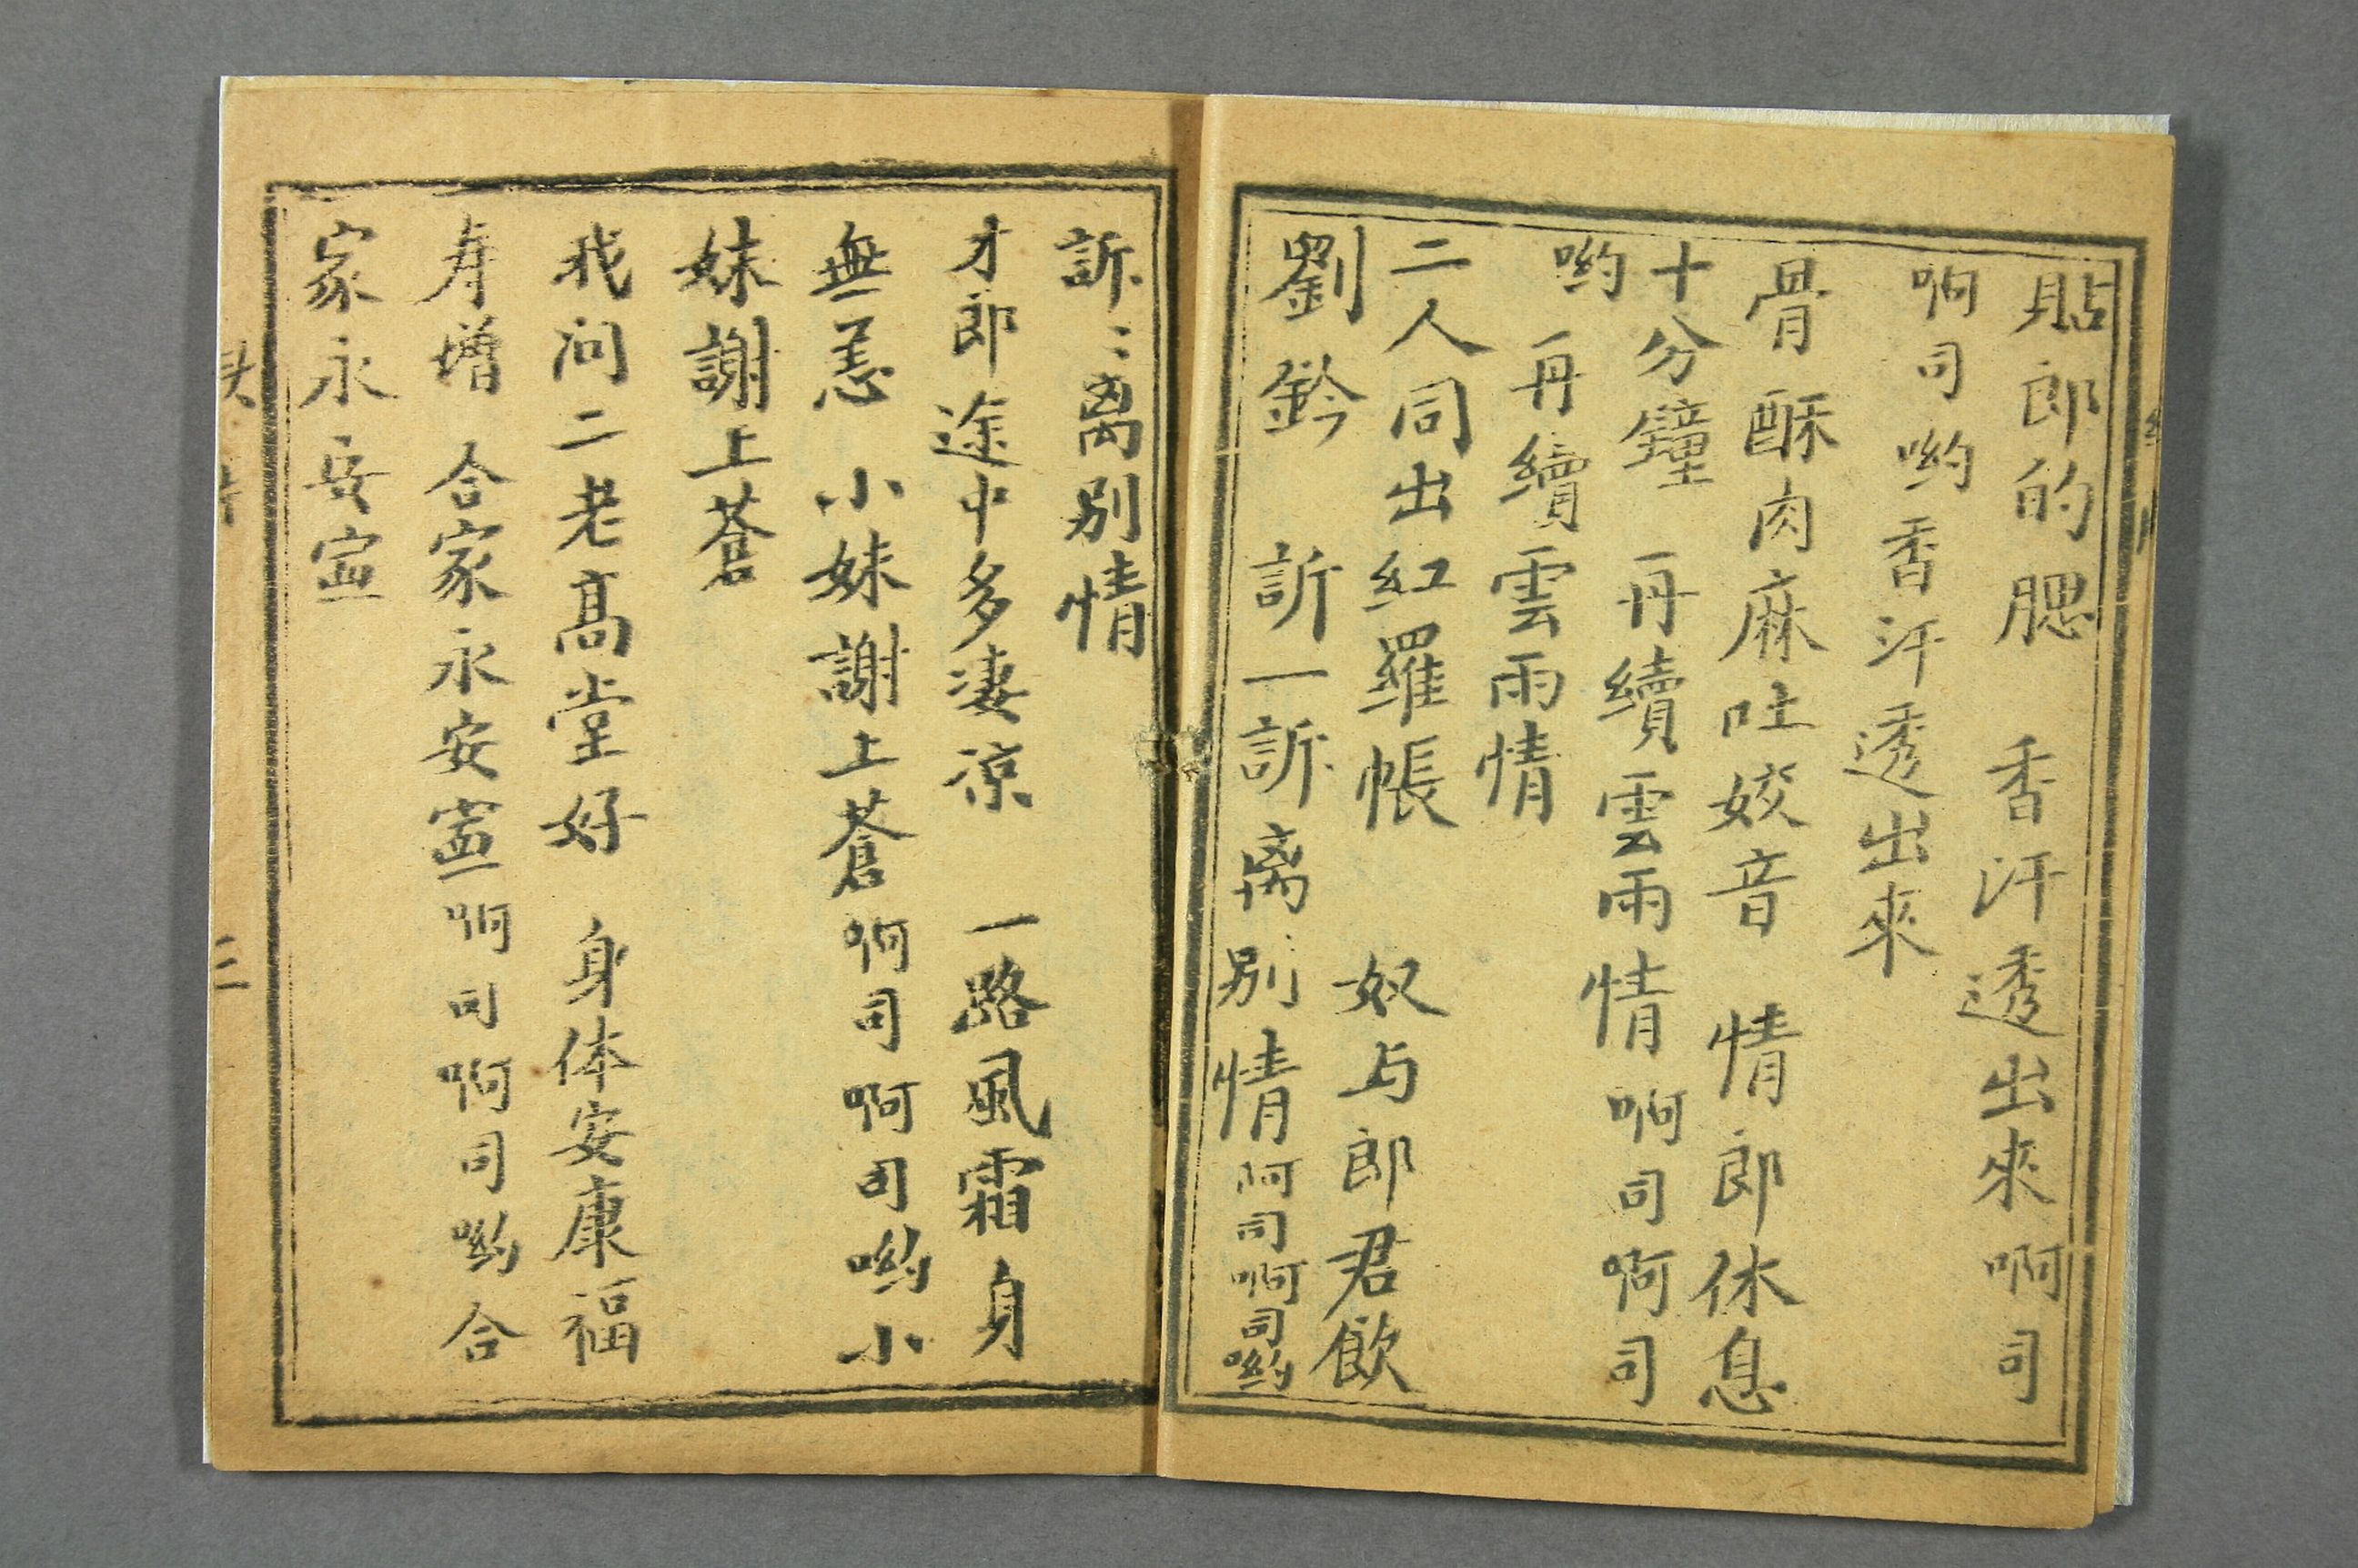 貼郎的腮　香汗透出來啊司
啊司喲香汗透出來
骨酥肉麻吐姣音　情郎休息
十分鐘　再續雲雨情啊司啊司
喲　再續雲雨情
二人同出紅羅帳　奴与郎君飲
劉鈴　訴一訴离別情啊司啊司喲
訴〻离別情
才郎途中多淒涼　一路風霜身
無恙　小妹謝上蒼啊司啊司喲小
妹謝上蒼
我问二老髙堂好　身体安康福
寿增　合家永安寍啊司啊司喲合
家永安寍
三